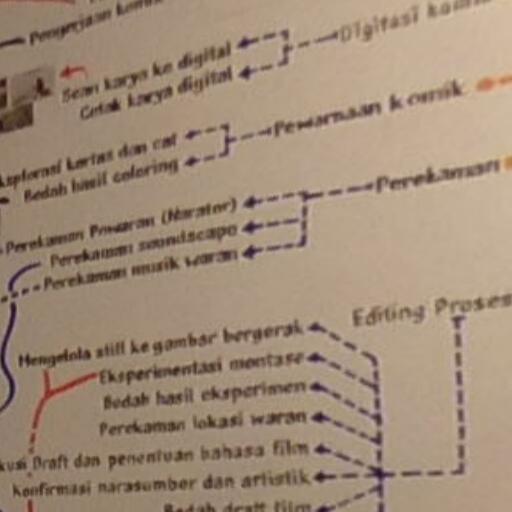 Pengerjaan komik
Digitasi komik
Scan karya ke digital
Cetak karya digital
Pewarnaan komik
Eksplorasi kertas dan cat
Bedah hasil coloring
Perekaman
Perekaman Pewaran (Narator)
Perekaman soundscape
Perekaman musik waran
Editing Proses
Mengelola still ke gambar bergerak
Eksperimentasi montase
Bedah hasil eksperimen
Perekaman lokasi waran
kusi Draft dan penentuan bahasa film
Konfirmasi narasumber dan artistik
Bedah draft film